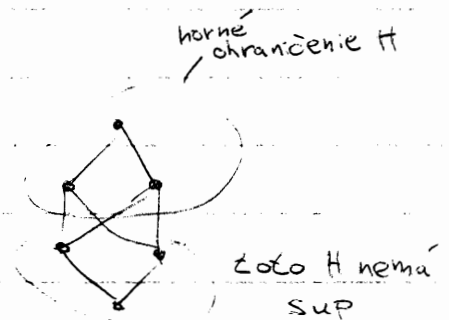 horné
ohrančenie H
toto H nemá
sup